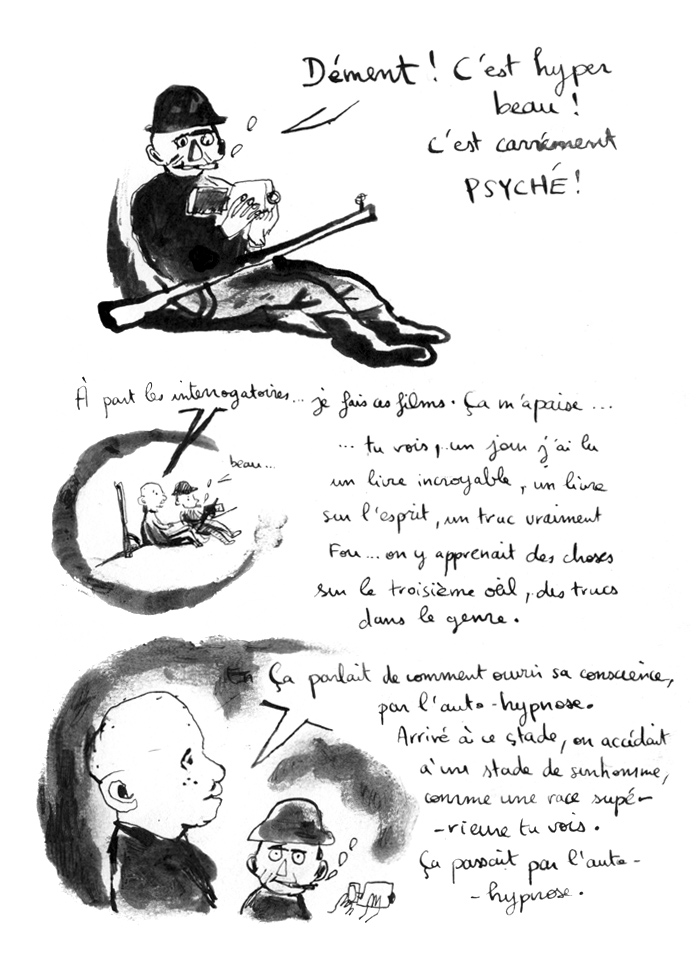 Dément ! C'est hyper
beau !
c'est carrément
PSYCHÉ !
À part les interrogatoires... je fais ces films. Ça m'apaise ...
beau...
... tu vois, un jour j'ai lu
un livre incroyable, un livre
sur l'esprit, un truc vraiment
Fou... on y apprenait des choses
sur le troisième oeil, des trucs
dans le genre.
Ça parlait de comment ouvrir sa conscience,
par l'auto-hypnose.
Arrivé à ce stade, on accédait
à un stade de surhomme,
comme une race supé-
-rieure tu vois.
Ça passait par l'auto-
-hypnose.